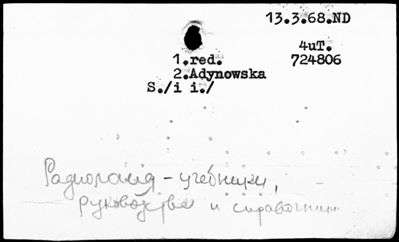 13.3.68.ND
4uT.
1.red. 724806
2.Adynowska
S./i i./
Радиолоид - учебники,
руководства и справочники